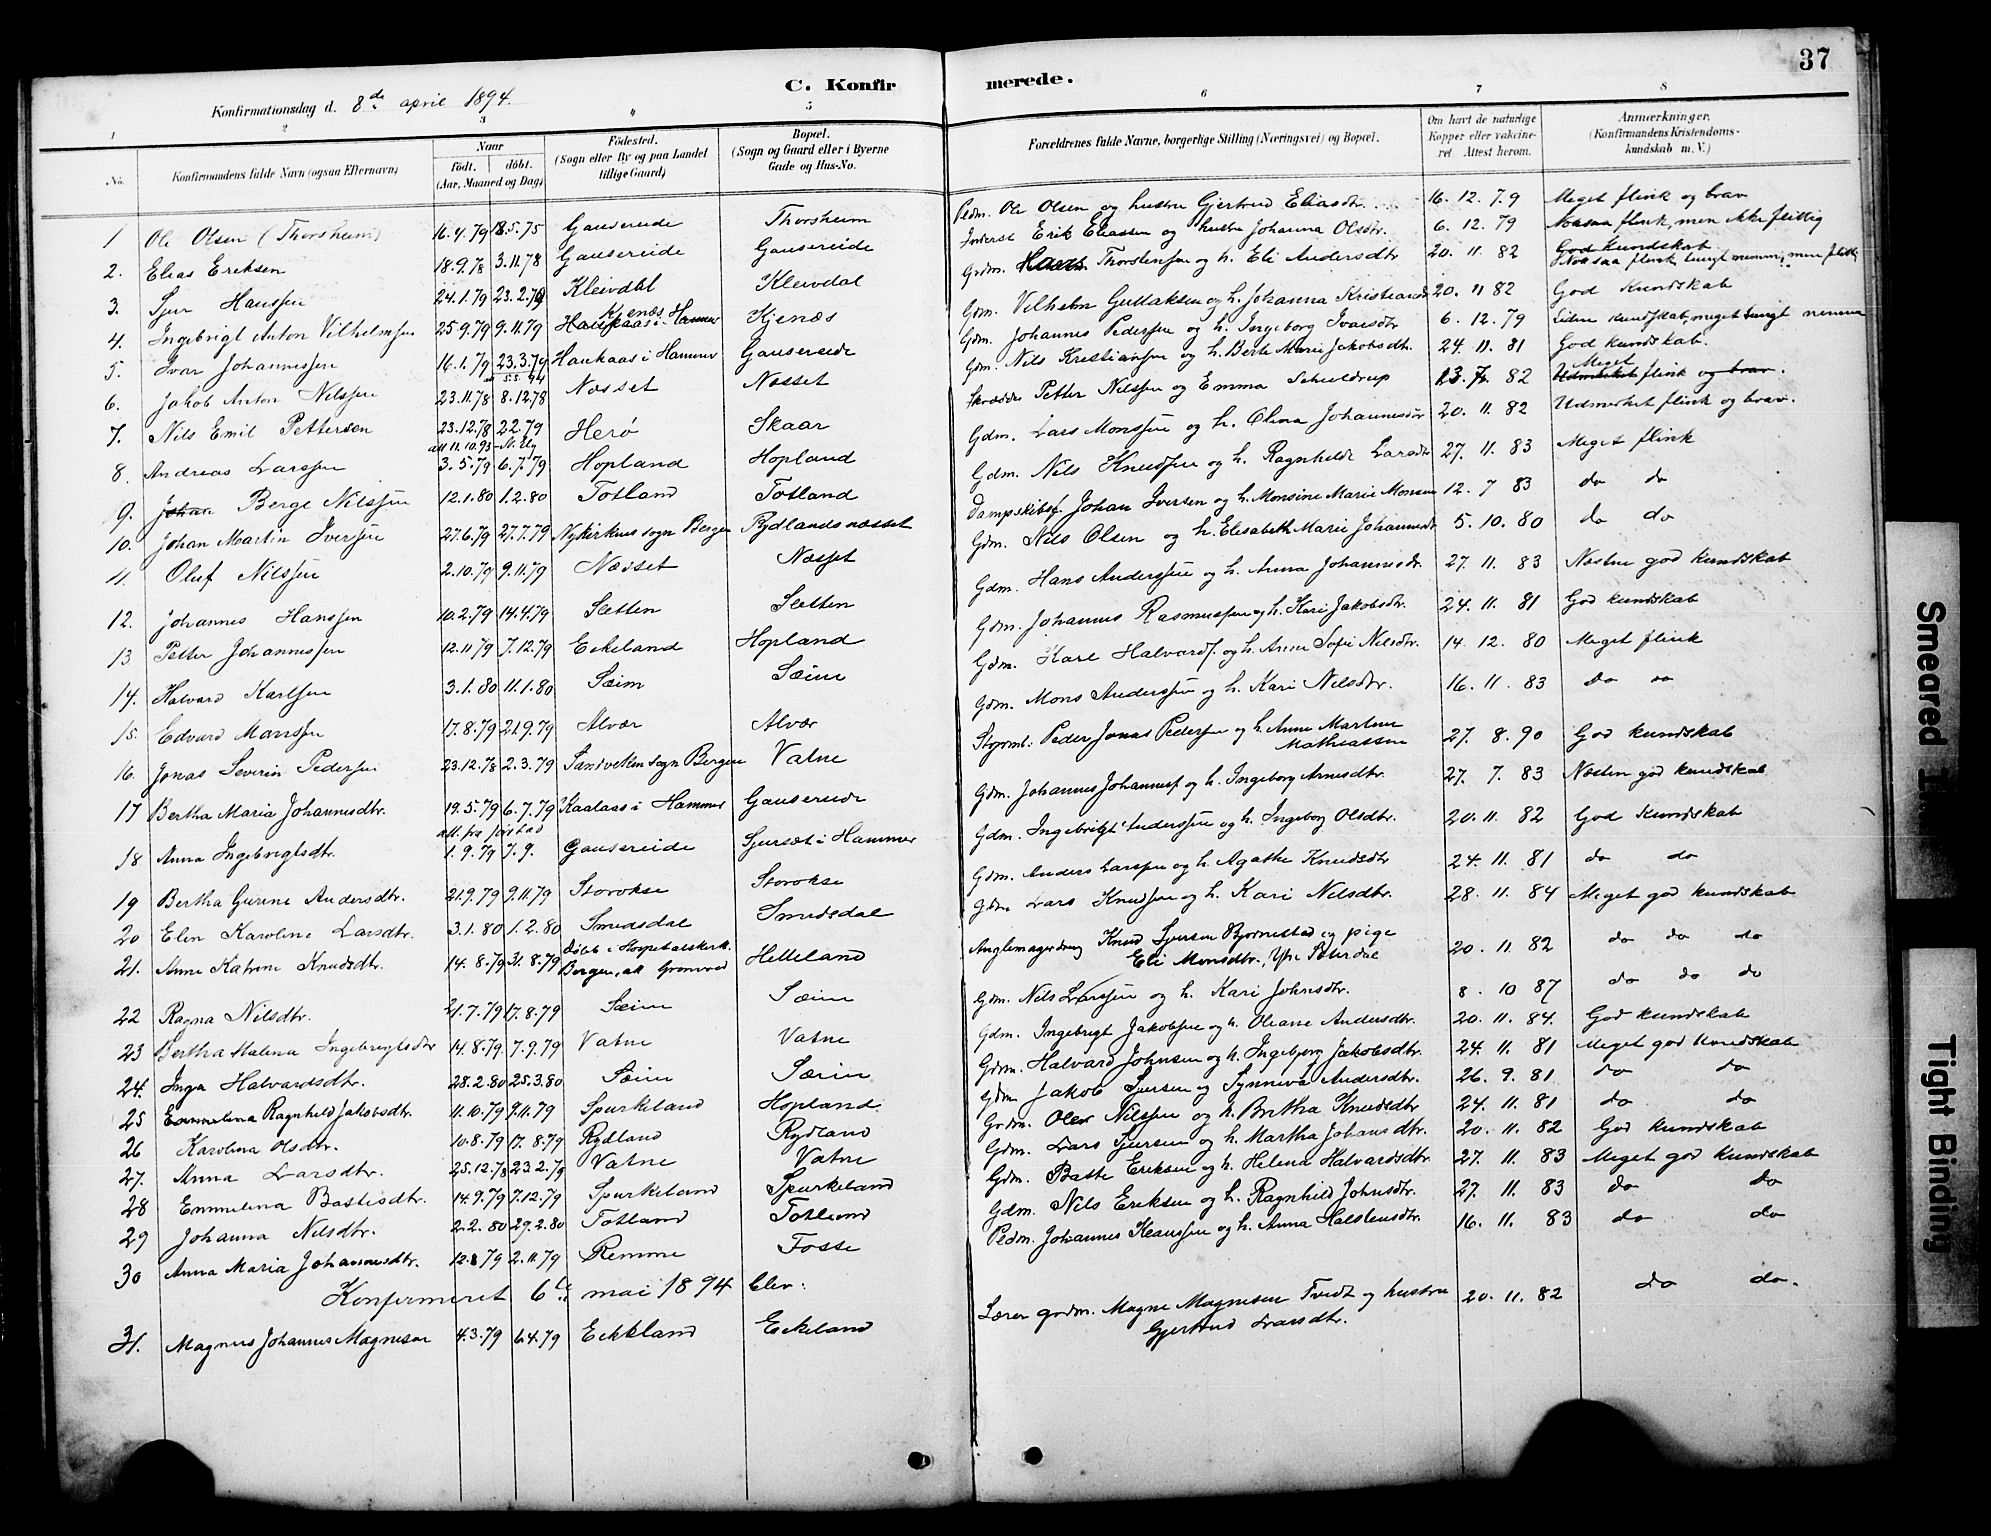 37
C. Konfirmerede.
Konfirmationsdag d. 8de april 1894.
1 2 3 4 5 6 7 8
No. Konfirmandens fulde Navn (ogsaa Efternavn) Naar Födt. döbt. (Aar, Maaned og Dag) Födested. (Sogn eller By og paa Landet tillige Gaard) Bopæl. (Sogn og Gaard eller i Byerne Gade og Hus-No. Forældrenes fulde Navne, borgerlige Stilling (Næringsvei) og Bopæl. Om havt de naturlige Kopper eller vakcineret Attest herom. Anmærkninger. (Konfirmandens Kristendomskundskab m. V.)
1 Ole Olsen (Thorsheim) 16.4.79 18.5.75 Gausereide Thorsheim Pedm. Ole Olsen og hustru Gjertrud Eliasdtr. 16. 12. 79 Meget flink og brav
2. Elias Eriksen 18.9.78 3.11.78 Gausereide Gausereide Inderst Erik Eliassen og hustru Johanna Olsdtr. 6. 12. 79 Noksaa flink, men ikke flittig
3. Sjur Hanssen 24.1.79 23.2.79 Kleivdal Kleivdal Grdm. Hans Thorstensen og h. Eli Andersdtr 20. 11 82 God kundskab Noksaa flink, tungt nemme, men flitt.
4. Ingebrigt Anton Vilhelmsen 25.9.79 9.11.79 Kjenæs Haukaas i Hammer Kjenæs Gdm. Vilhelm Guttaksen og h. Johanna Kristiansd 20. 11 82 God Kundskab
5. Ivar Johannessen 16.1.79 23.3.79 Haukaas i Hammer Gausereide Gdm. Johannes Pedersen og h. Ingeborg Ivarsdtr 6. 12. 79 Liden kundskab, meget tungt nemme
6. Jakob Anton Nilssen 23.11.78 8.12.78 Næsset Næsset Gdm. Nils Kristiansen og h. Berte Marie Jakobsdt. 24. 11. 81 God kundskab.
7. Nils Emil Pettersen 23.12.78 2.2.79 Herø Skaar Skrædder Petter Nilssen og Emma Schieldrup 13. 7. 82 Udmerket Meget flink og brav.
8. Andreas Larssen 3.5.79 6.7.79 Hopland Hopland Gdm. Lars Monssen og h. Olina Johannesdtr 20. 11. 82 Udmerket flink og brav.
9. Johan Berge Nilssen 12.1.80 1.2.80 Totland Totland Gdm. Nils Knudsen og h. Ragnhilde Larsdtr 27. 11. 83 Meget flink
10. Johan Martin Iversen 27.6.79 27.7.79 Nykirkens sogn Bergen Rydlandsnæsset Dampskibsf. Johan Iversen og h. Monsine Marie Monsen 12. 7 83 do do
11. Oluf Nilssen 2.10.79 9.11.79 Næsset Næsset Gdm. Nils Olsen og h. Elisabeth Marie Johannesdt. 5. 10. 80 do do
12. Johannes Hanssen 10.2.79 14.4.79 Sletten Sletten Gdm. Hans Anderssen og h. Anna Johannesdr. 27. 11. 83 Næsten god kundskab
13 Petter Johannessen 12.11.79 7.12.79 Eekeland Hopland Gdm. Johannes Rasmussen og h. Kari Jakobsdtr. 24. 11. 81 God kundskab
14. Halvard Karlsen 3.1.80 11.1.80 Sæim Sæim Gdm. Karl Halvards. og h. Anna Sofie Nilsdtr. 14. 12. 80 Meget flink
15. Edvard Monssen 17.8.79 21.9.79 Alvær Alvær Gdm. Mons Anderssen og h. Kari Nilsdtr. 16. 11. 83 do do
16. Jonas Severin Pedersen 23.12.78 2.3.79 Sandviken sogn Bergen Vatne Peder Jonas Pedersen og h. Anne Martine Mathiassen 27. 8. 90 God kundskab
17 Bertha Maria Johannesdtr. 19.5.79 6.7.79 Kaalaas i Hammer Gausereide Gdm. Johannes Johanness. og h. Ingeborg Arnesdtr. 27. 7. 83 Næsten god kundskab
18 Anna Ingebrigtsdtr. 1.9.79 7.9. Gausereide Sjursæt i Hammer Gdm. Ingebrigt Anderssen og h. Ingeborg Olsdtr. 20. 11. 82 God Kundskab
19 Bertha Gurine Andersdtr. 21.9.79 9.11.79 Storokse Storokse Gdm. Anders Larssen og h. Agathe Knudsdtr 24. 11. 81 do do
20 Elen Karoline Larsdtr. 3.1.80 1.2.80 Smedsdal Smedsdal Gdm Lars Knudsen og h. Kari Nilsdtr. 28. 11. 84 Meget god kundskab
21. Anne Katrine Knudsdtr. 14.8.79 31.8.79 Döbt i Hospitalskirk. Bergen, Helleland Knud Sjursen Bjørnestad og pige Eli Monsdtr. 20. 11 82 do do do
22 Ragna Nilsdtr. 21.7.79 17.8.79 Sæim Sæim Gdm. Nils Larssen og h. Kari Johnsdtr. 8. 10 87 do do do
23 Bertha Malena Ingebregtsdtr 14.8.79 7.9.79 Vatne Vatne Gdm. Ingebrigt Jakobsen og h. Oleane Andersdtr. 20. 11. 84. God kundskab
24. Inga Halvardsdtr. 28.2.80 25.3.80 Sæim Sæim Gdm. Halvard Johnsen og h. Ingebjørg Jakobsdtr. 24. 11. 81 Meget god kundskab
25 Emmelina Ragnhild Jakobsdtr. 11.10.79 9.11.79 Spurkeland Hopland Gdm Jakob Sjursen og Synneva Andersdtr. 26. 9. 81 do do
26 Karolina Olsdtr. 10.8.79 17.8.79 Rydland Rydland Grdm. Olav Nilssen og h. Britha Knudsdtr 24. 11. 81 do do
27. Anna Larsdtr. 25.12.78 23.2.79 Vatne Vatne Gdm. Lars Sjursen og h. Martha Johansdtr. 20. 11. 82 God kundskab
28 Emmelina Bastisdtr. 14.9.79 7.12.79 Spurkeland Spurkeland Gdm. Baste Eriksen og h. Helena Halvardsdtr. 27. 11. 83 Meget god kundskab
29 Johanna Nilsdtr. 2.2.80 29.2.80 Totland Totland Gdm. Nils Eriksen og h. Ragnhild Johnsdtr. 27. 11. 83 do do
30 Anna Maria Johannesdtr. 12.8.79 2.11.79 Remme Fosse Pedm. Johannes Klaussen og h. Anna Halstensdtr. 16. 11. 83 do do
Konfermeret 6te mai 1894 blev:
31. Magnus Johannes Magnesen 4.3.79 6.4.79 Eekeland Eekeland Lærer grdm. Magne Magnesen Tvedt og hustru Gjertrud Larsdtr. 20. 11. 82 do do.
Smeared
Tight Binding